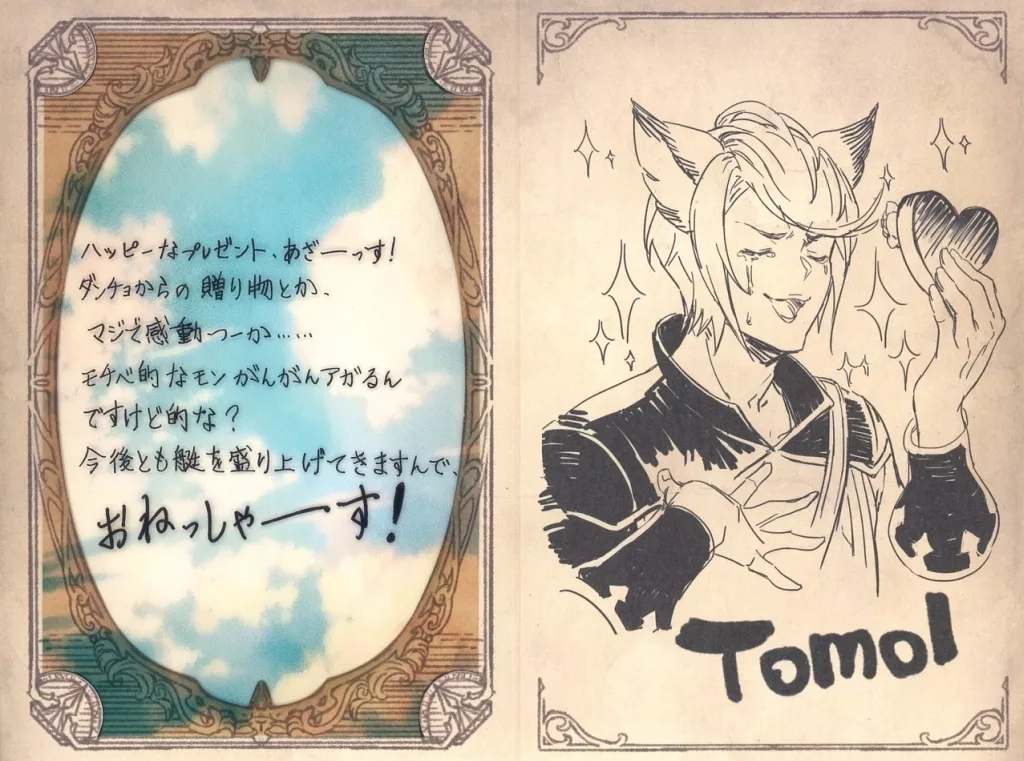 ハッピーなプレゼント、あざーーっす!
ダンチョからの贈り物とか、
マジで感動つーか……
モチベ的なモンがんがんアガるん
ですけど的な?
今後とも艇を盛り上げてきますんで、
おねっしゃーーす!
Tomoi